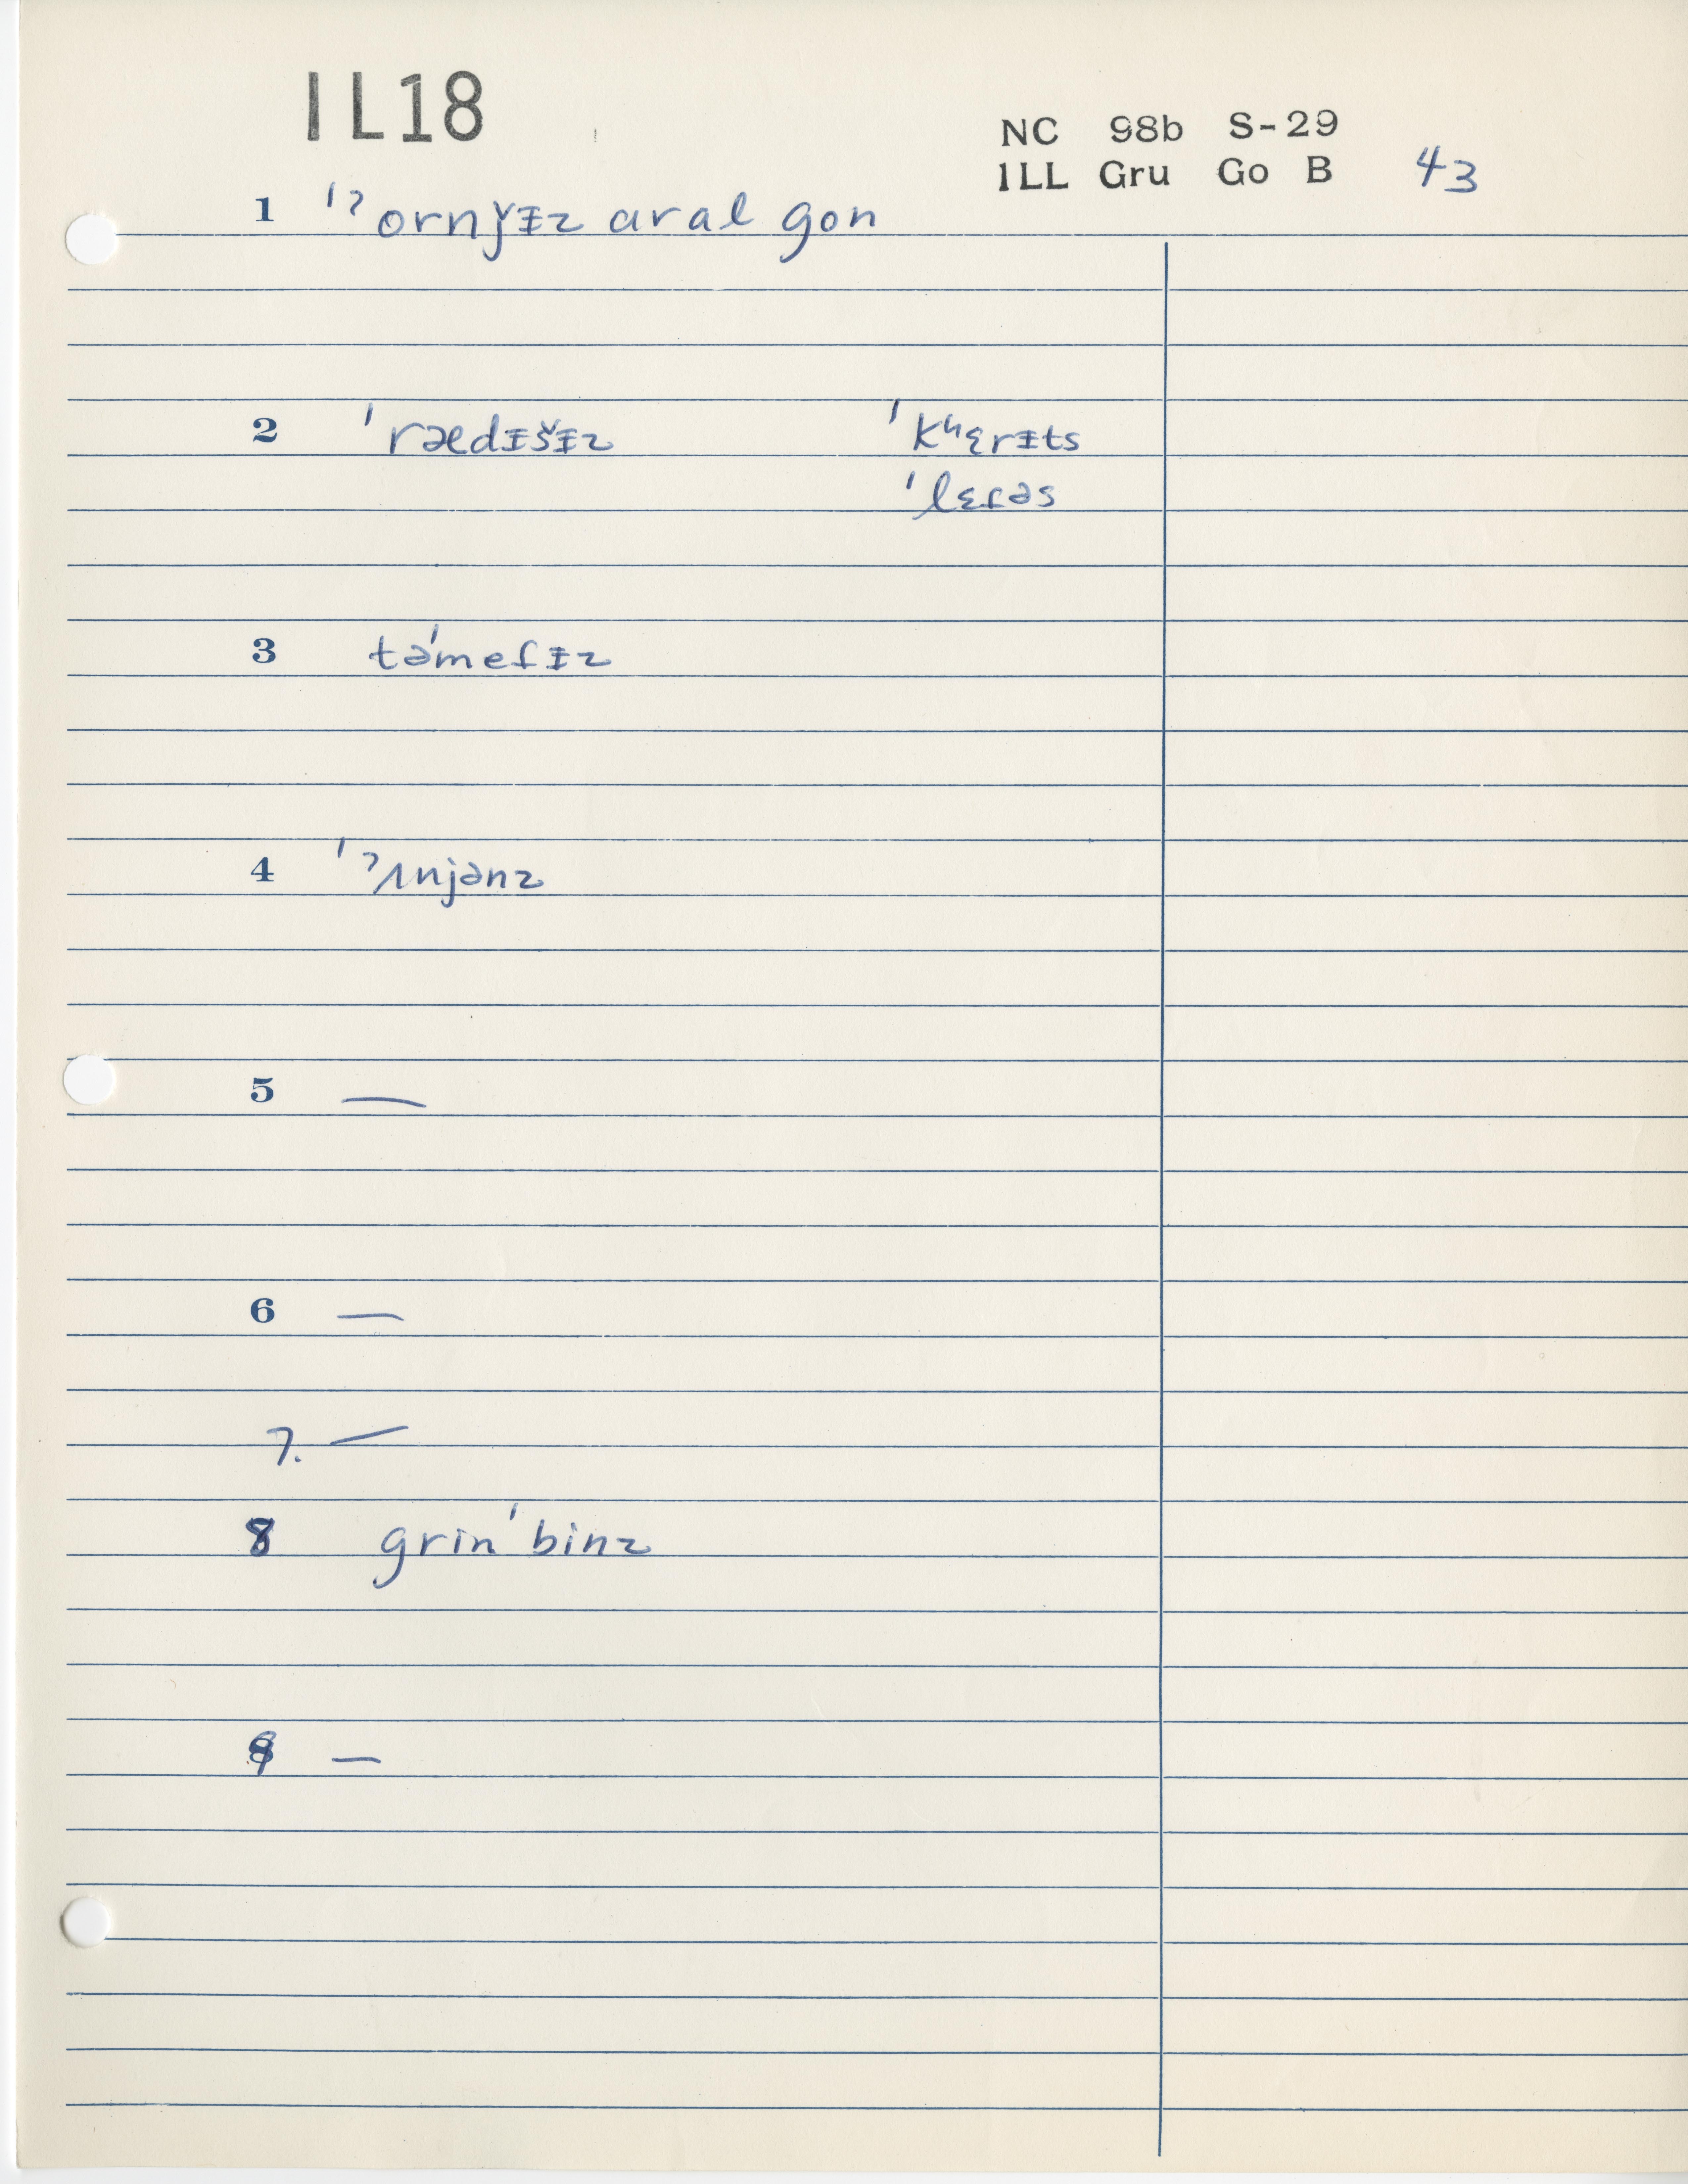 IL18
NC 98b S-29
ILL Gru Go B 43
1 ˈʔornǰɪ̵z arəl gon
2 ˈrædɪ̵šɪ̵z ˈkʰɛrɪ̵ts
ˈlɛɾəs
3 təˈmeɾɪ̵z
4 ˈʔʌnjənz
5 —
6 —
7. —
8 grinˈbinz
9 —